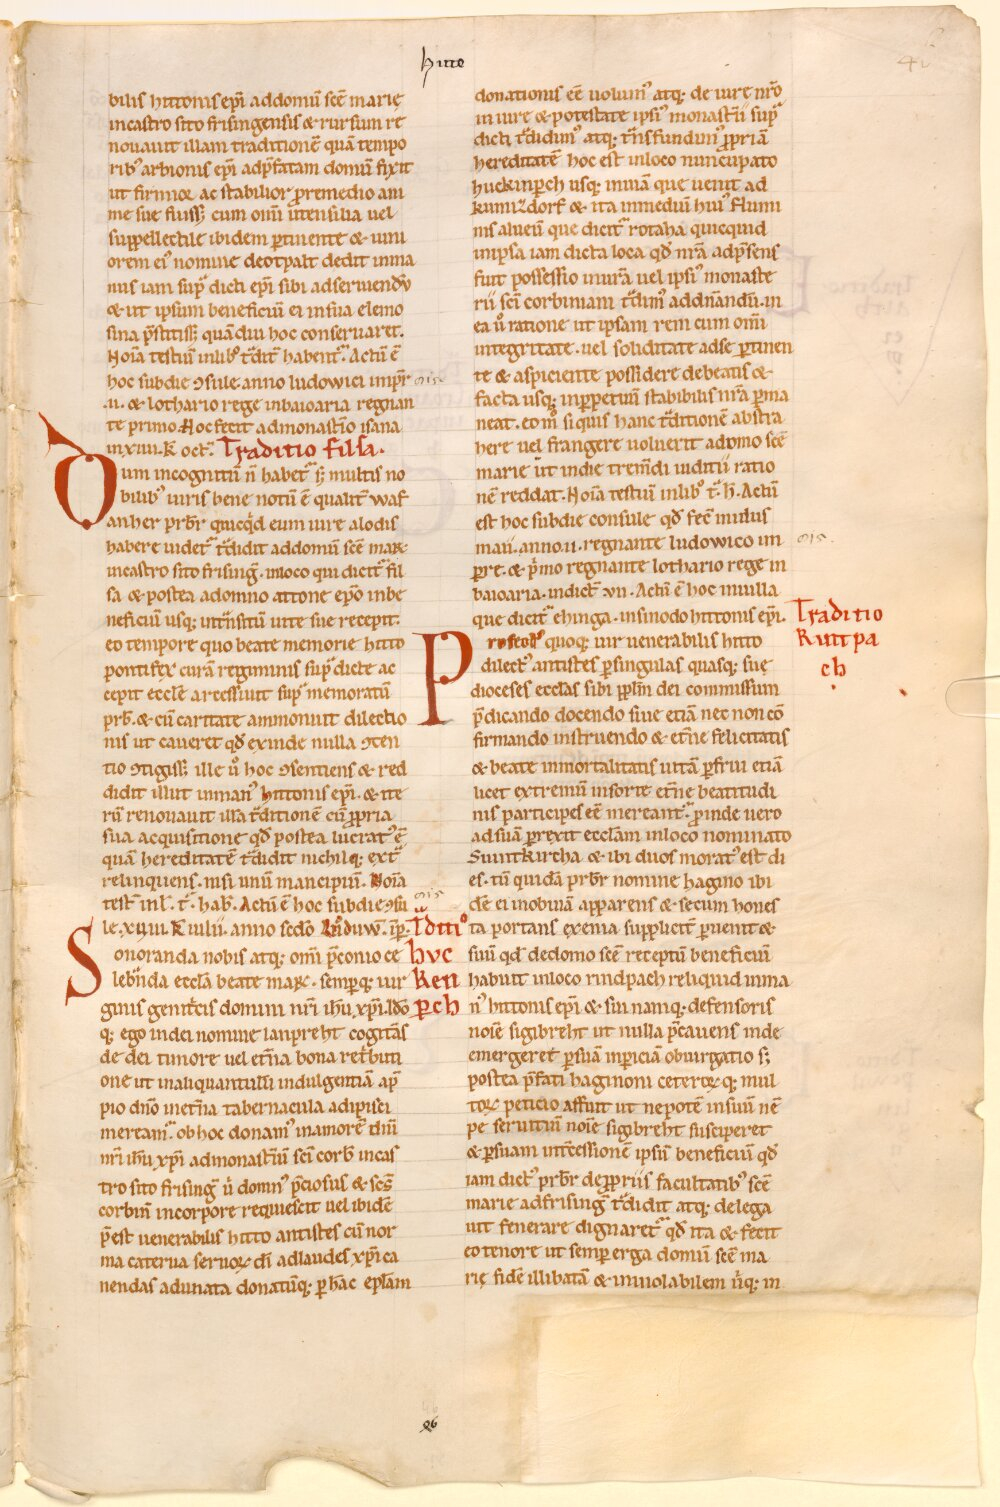 hitto
46
bilis hittonis ep̄i ad domū sc̄e marię
in castro sito frisingensis & rursum re
nouauit illam traditionē quā tempo
rib; arbionis ep̄i ad p̄fatam domū fixit
ut firmior ac stabilior ꝓ remedio ani
mę sue fuiss& cum om̄i utensilia uel
suppellectile ibidem ꝑtinente & iuni
orem ei᷒ nomine deotpalt dedit in ma
nus iam sup᷑ dicti ep̄i sibi ad seruiendū
& ut ipsum beneficiū ei in sua elemo
sina p̄stitiss& quādiu hoc conseruaret.
Noīa testiū in lib᷒ t᷑dit᷑ habent᷑. Actū ē
hoc sub die ꝯsule anno ludowici imp̄r
.ii. & lothario rege in baioaria regnan
te primo. Hoc fecit ad monast̄io isana
in xiiii. K̄ oct᷑. Traditio filsa.
Dum incognitū n̄ habet᷑ s; multis no
bilib; iuris bene notū ē qualit᷑ waf
anher pr̄br quicq̇d eum iure alodis
habere uidet᷑ t᷑didit ad domū sc̄e mar̄
in castro sito frising̅. in loco qui dicit᷑ fil
sa & postea a domno attone ep̄o in be
neficiū usq; in t᷑nsitū uite sue recepit.
eo tempore quo beate memorie hitto
pontifex curā regiminis sup᷑ dicte ac
cepit eccl̄e arcessiuit sup᷑ memoratū
pr̄b. & cū caritate ammonuit dilectio
nis ut caueret qd̄ exinde nulla ꝯten
tio ꝯtigiss& ille ů hoc ꝯsentiens & red
didit illut in man᷒ hittonis ep̄i. & ite
rū renouauit illā t᷑ditionē cū ꝓpria
sua acquisitione qd̄ postea lucrat᷒ ē
quā hereditatē t᷑didit nichilq; ext᷑
relinquens. nisi unū mancipiū. Noīa
test᷑ in l᷑. t᷑. hab̄. Actū ē hoc sub die ꝯsu
le. xiiii. K̄ iulii. anno sc̄do hluduw̄. ip̄r. T᷑diti᷒
Sonoranda nobis atq; om̄i p̄conio ce hvc
leb̄nda eccl̄a beate mar̄. semperq; uir ken
ginis genit᷑cis domini nr̄i ih̄u xp̄i. Id̄o ꝑch
q; ego in dei nomine lanpreht cogitās
de dei timore uel et̄na bona ret᷑buti
one ut in aliquantulū indulgentiā ap̄
pio dn̄o in et̄na tabernacula adipisci
meream᷑. ob hoc donam᷒ in amorē dn̄i
nr̄i ih̄u xp̄i ad monast̄iū sc̄i corb̄ in cas
tro sito frising̅ ů domn᷒ p̄ciosus & sc̄s
corbin̄ in corpore requiescit uel ibidē
p̄est uenerabilis hitto antistes cū nor
ma caterua seruoꝝ dī ad laudes xp̄i ca
nendas adunata donatūq; ꝑ hāc ep̄lam
donationis eē uolum᷒ atq; de iure nr̄o
in iure & potestate ipsi᷒ monast̄ii sup᷑
dicti t᷑didim᷒ atq; t᷑nsfundim᷒ ꝓpriā
hereditatē hoc est in loco nuncupato
huckinꝑch usq; in uiā que uenit ad
kumizdorf & ita in mediū hui᷒ flumi
nis alueū que dicit᷑ rotaha quicquid
in ipsa iam dicta loca qd̄ nr̄a ad p̄sens
fuit possessio in iurā uel ipsi᷒ monaste
rii sc̄i corbiniani t᷑dim᷒ ad dn̄andū. in
ea ů ratione ut ipsam rem cum om̄i
integritate. uel soliditate ad se ꝑtinen
te & aspiciente possidere debeatis &
facta usq; in ꝑpetuū stabibilis nr̄a ꝑma
neat. eo m̊ si quis hanc t᷑ditionē abstra
here uel frangere uoluerit a domo sc̄e
marie ūt inde trem̄di iuditii ratio
nē reddat. Noīa testiū in lib᷒ t᷑. h̄. Actū
est hoc sub die consule qd̄ fec̄ in idus
maii. anno. ii. regnante ludowico im
ꝑre. & p̓mo regnante lothario rege in
baioaria. indict̄ vii. Actū ē hoc in uilla
que dicit᷑ ehinga. in sinodo hittonis ep̄i.
Traditio
Rintpa
ch
Profect᷒ quoq; uir uenerabilis hitto
dilect᷒ antistes ꝑ singulas quasq; sue
dioceses eccl̄as sibi ppl̄m dei commissum
p̄dicando docendo siue etiā nec non cō
firmando instruendo & et̄ne felicitatis
& beate inmortalitatis uitā ꝑfrui etiā
licet extremū in sorte et̄ne beatitudi
nis participes eē mereant᷑. proinde uero
ad suā ꝑrexit eccl̄am in loco nominato
Suuitkircha & ibi duos morat᷒ est di
es. tū quidā pr̄br nomine hagino ibi
dē ei in obuiā apparens & secum hones
ta portans exenia supplicit᷑ ꝑuenit &
suū qd̄ de domo sc̄e receptū beneficiū
habuit in loco rindpach reliquid in ma
n᷒ hittonis ep̄i & sui namq; defensoris
noīe sigibreht ut nulla p̄cauens inde
emergeret ꝑ suā inpericiā obiurgatio s;
postea p̄fati haginoni ceteroꝝq; mul
toꝝ peticio affuit ut nepotē in suū nē
pe seruitiū noīe sigibreht susciperet
& ꝑ suam int᷑cessionē ipsū beneficiū qd̄
iam dict᷒ pr̄br de ꝓpriis facultatib; sc̄e
marie ad frising̅ t᷑didit atq; delega
uit fenerare dignaret᷑ qd̄ ita & fecit
eo tenore ut semꝑ erga domū sc̄e ma
rię fidē illibatā & inuiolabilem ūq; in
815
815.
815
46